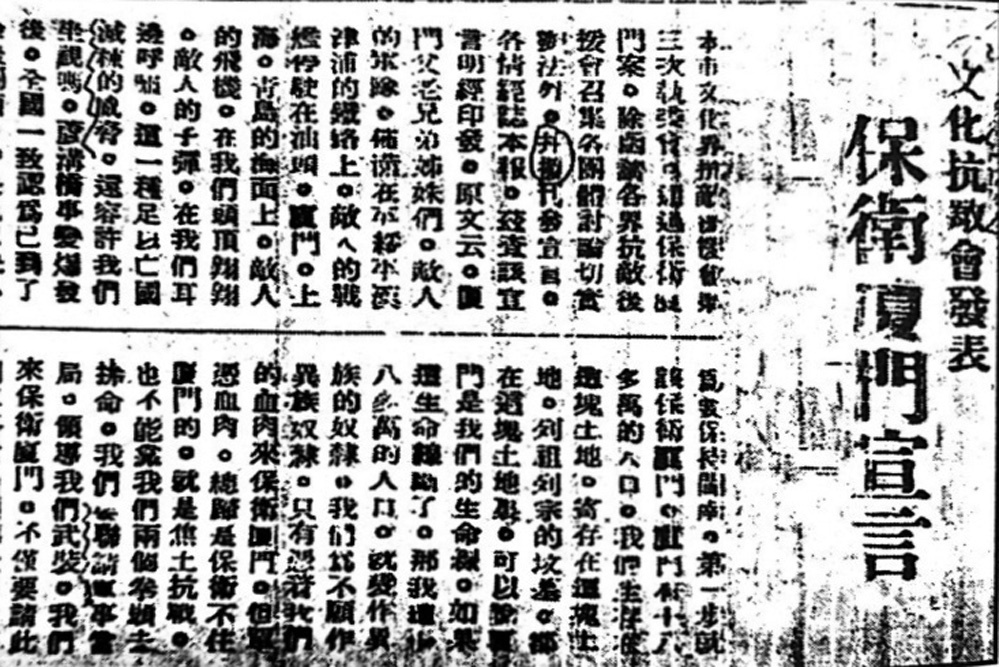 文化抗敵會發表
保衛廈門宣言
本市文化界抗敵後援會第
三次執委會。通過保衛廈
門案。除函請各界抗敵後
援會召集各團體討論切實
辦法外。并撰刊發宣言。
各情經誌本報。茲查該宣
言明經印發。原文云。廈
門父老兄弟姊妹們。敵人
的軍隊。佈滿在平綏平漢
津浦的鐵路上。敵人的戰
艦停駛在汕頭。廈門。上
海。青島的海面上。敵人
的飛機。在我們頭頂翔翔
。敵人的子彈。在我們耳
邊呼嘯。這一種足以亡國
滅種的威脅。還容許我們
坐視嗎。蘆溝橋事變爆發
後。全國一致認為已到了
第一步就
該保衛廈門。廈門有十八
多萬的人口。我們生存在
這塊土地。寄存在這塊土
地。列祖列宗的墳墓。都
在這塊土地裏。可以說廈
門是我們的生命線。如果
這生命線斷了。那我這十
八多萬的人口。就變作異
族的奴隸。我們為不願作
異族奴隸。只有憑着我們
的血肉來保衛廈門。但單
憑血肉。總歸是保衛不住
廈門的。就是焦土抗戰。
也不能靠我們兩個拳頭去
拚命。我們要聯請軍事當
局。領導我們武裝。我們
來保衛廈門。不僅要請此